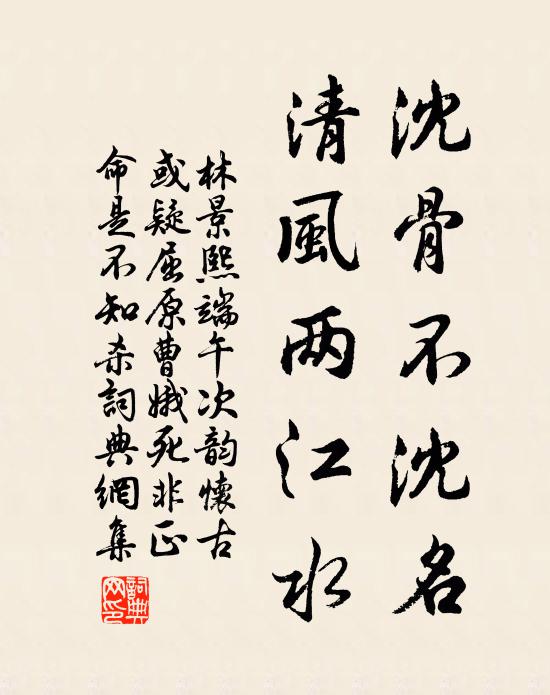 沈骨不沈名
清風两江水
林景熙端午次韵懷古
或疑屈原曹娥死非正
命是不知杀詞典網集
詞典
网印